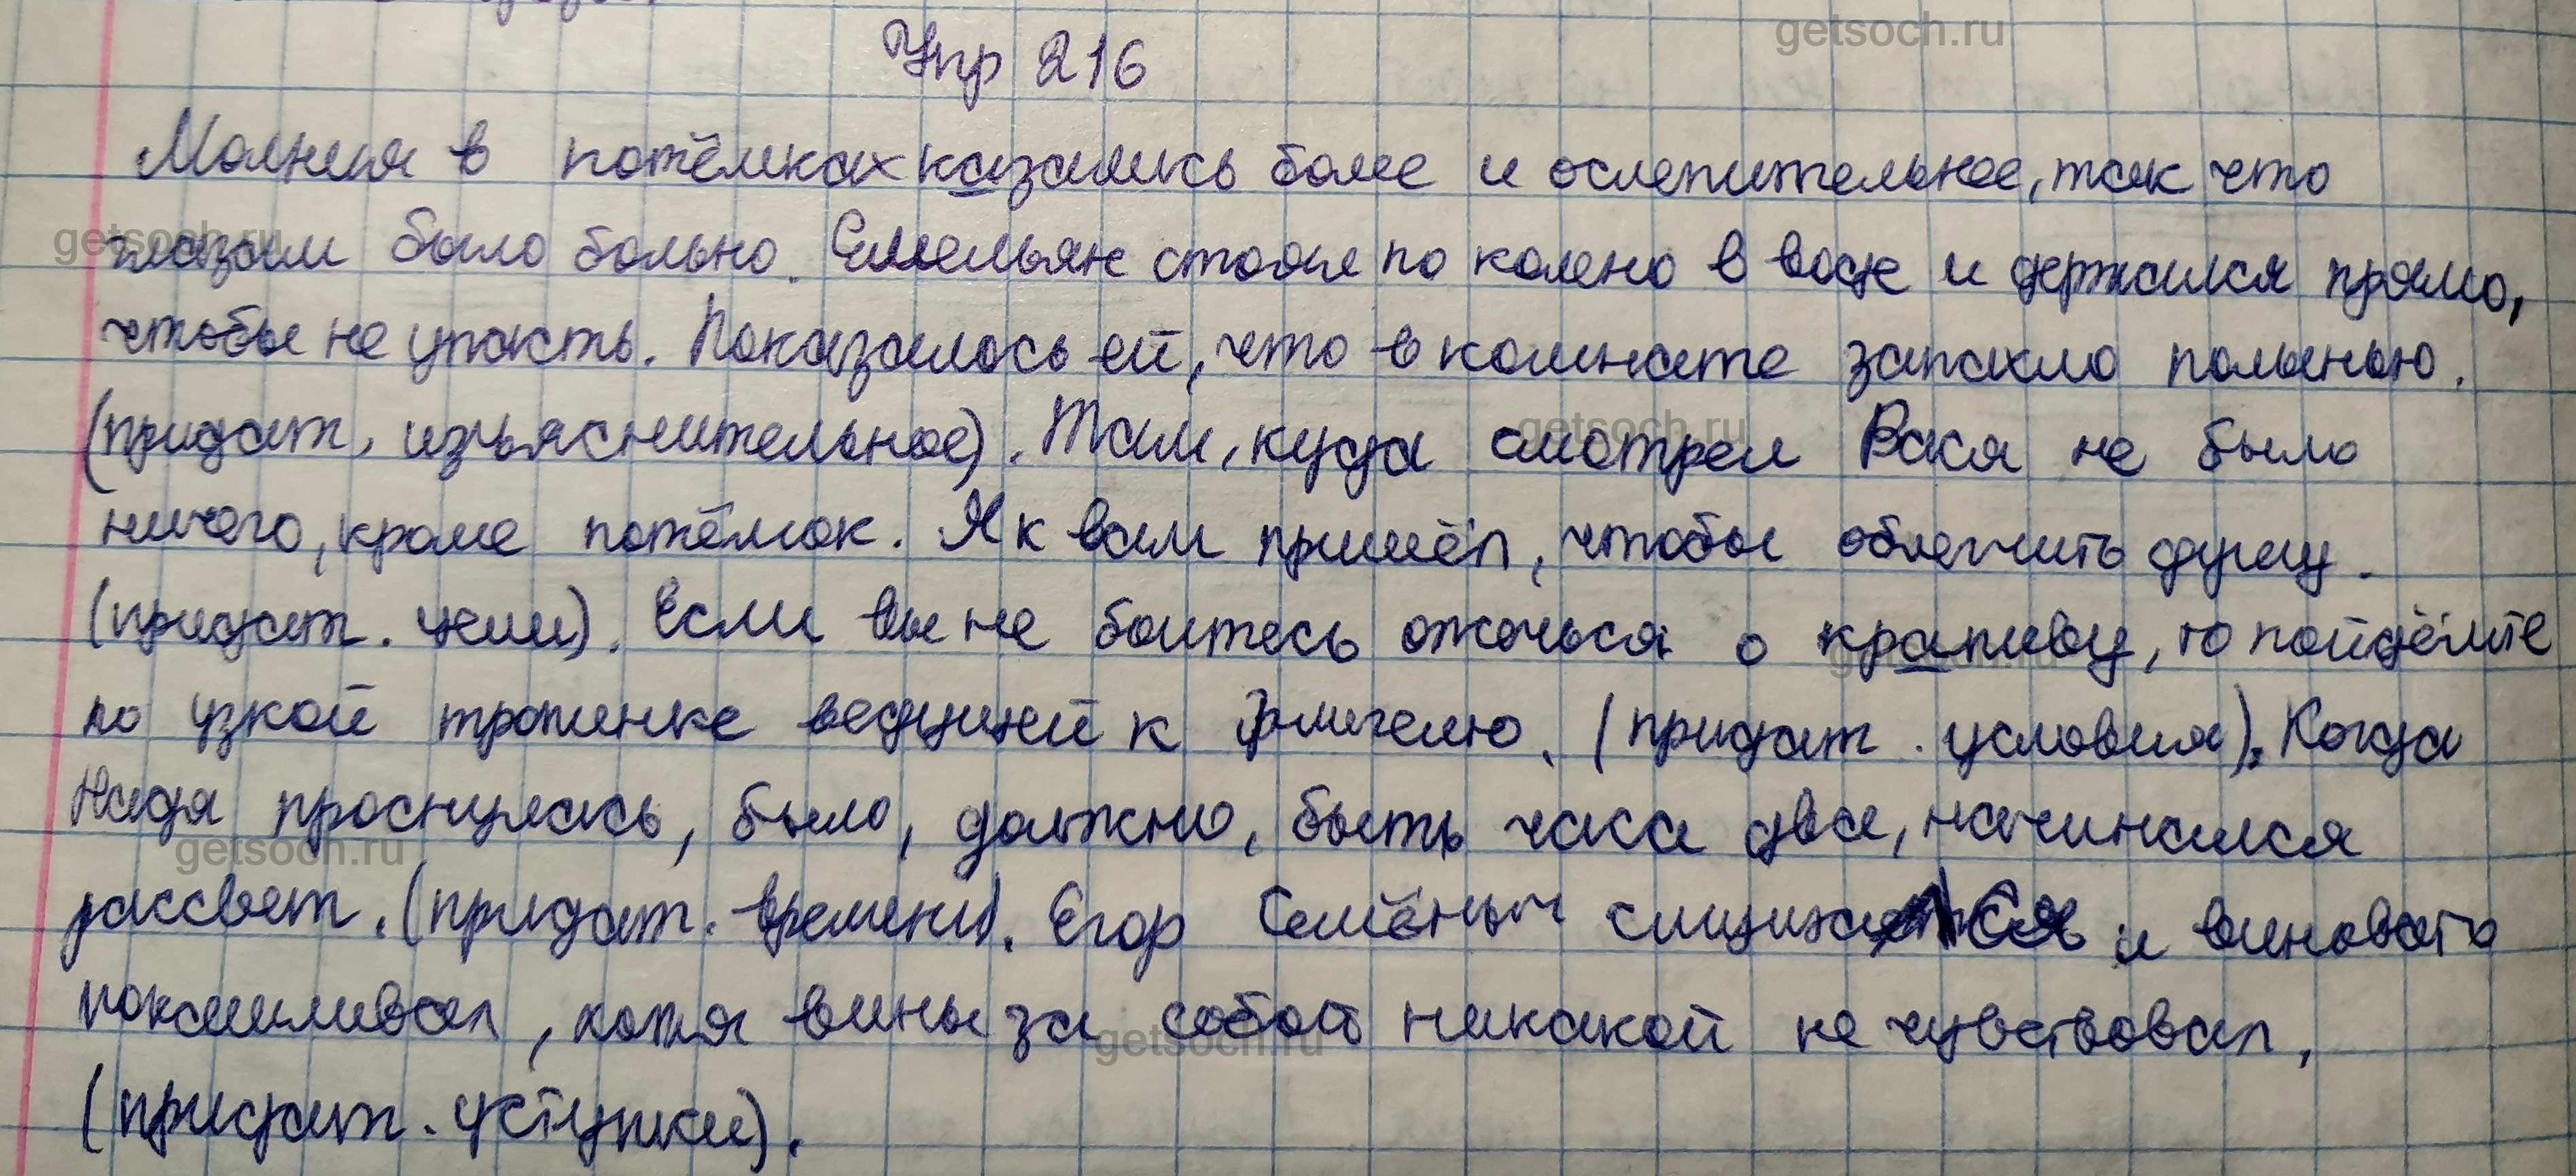 getsoch.ru
Упр 216
Молния в потёмках казались более и ослепительнее, так что
getsoch.ru
глазам было больно. Емельян стоял по колено в воде и держался прямо,
чтобы не упасть. Показалось ей, что в комнате запахло полынью.
(придат. изъяснительное). Там, куда смотрел Вася не было
getsoch.ru
ничего, кроме потёмок. Я к вам пришёл, чтобы облегчить душу.
(придат. цели). Если вы не боитесь ожечься о крапиву, то пойдёмте
getsoch.ru
по узкой тропинке ведущей к флигелю. (придат. условия). Когда
Надя проснулась, было, должно, быть часа два, начинался
getsoch.ru
рассвет. (придат. времени). Егор Семёныч и виновато
покашливал, хотя вины за собой никакой не чувствовал,
getsoch.ru
(придат. уступки).